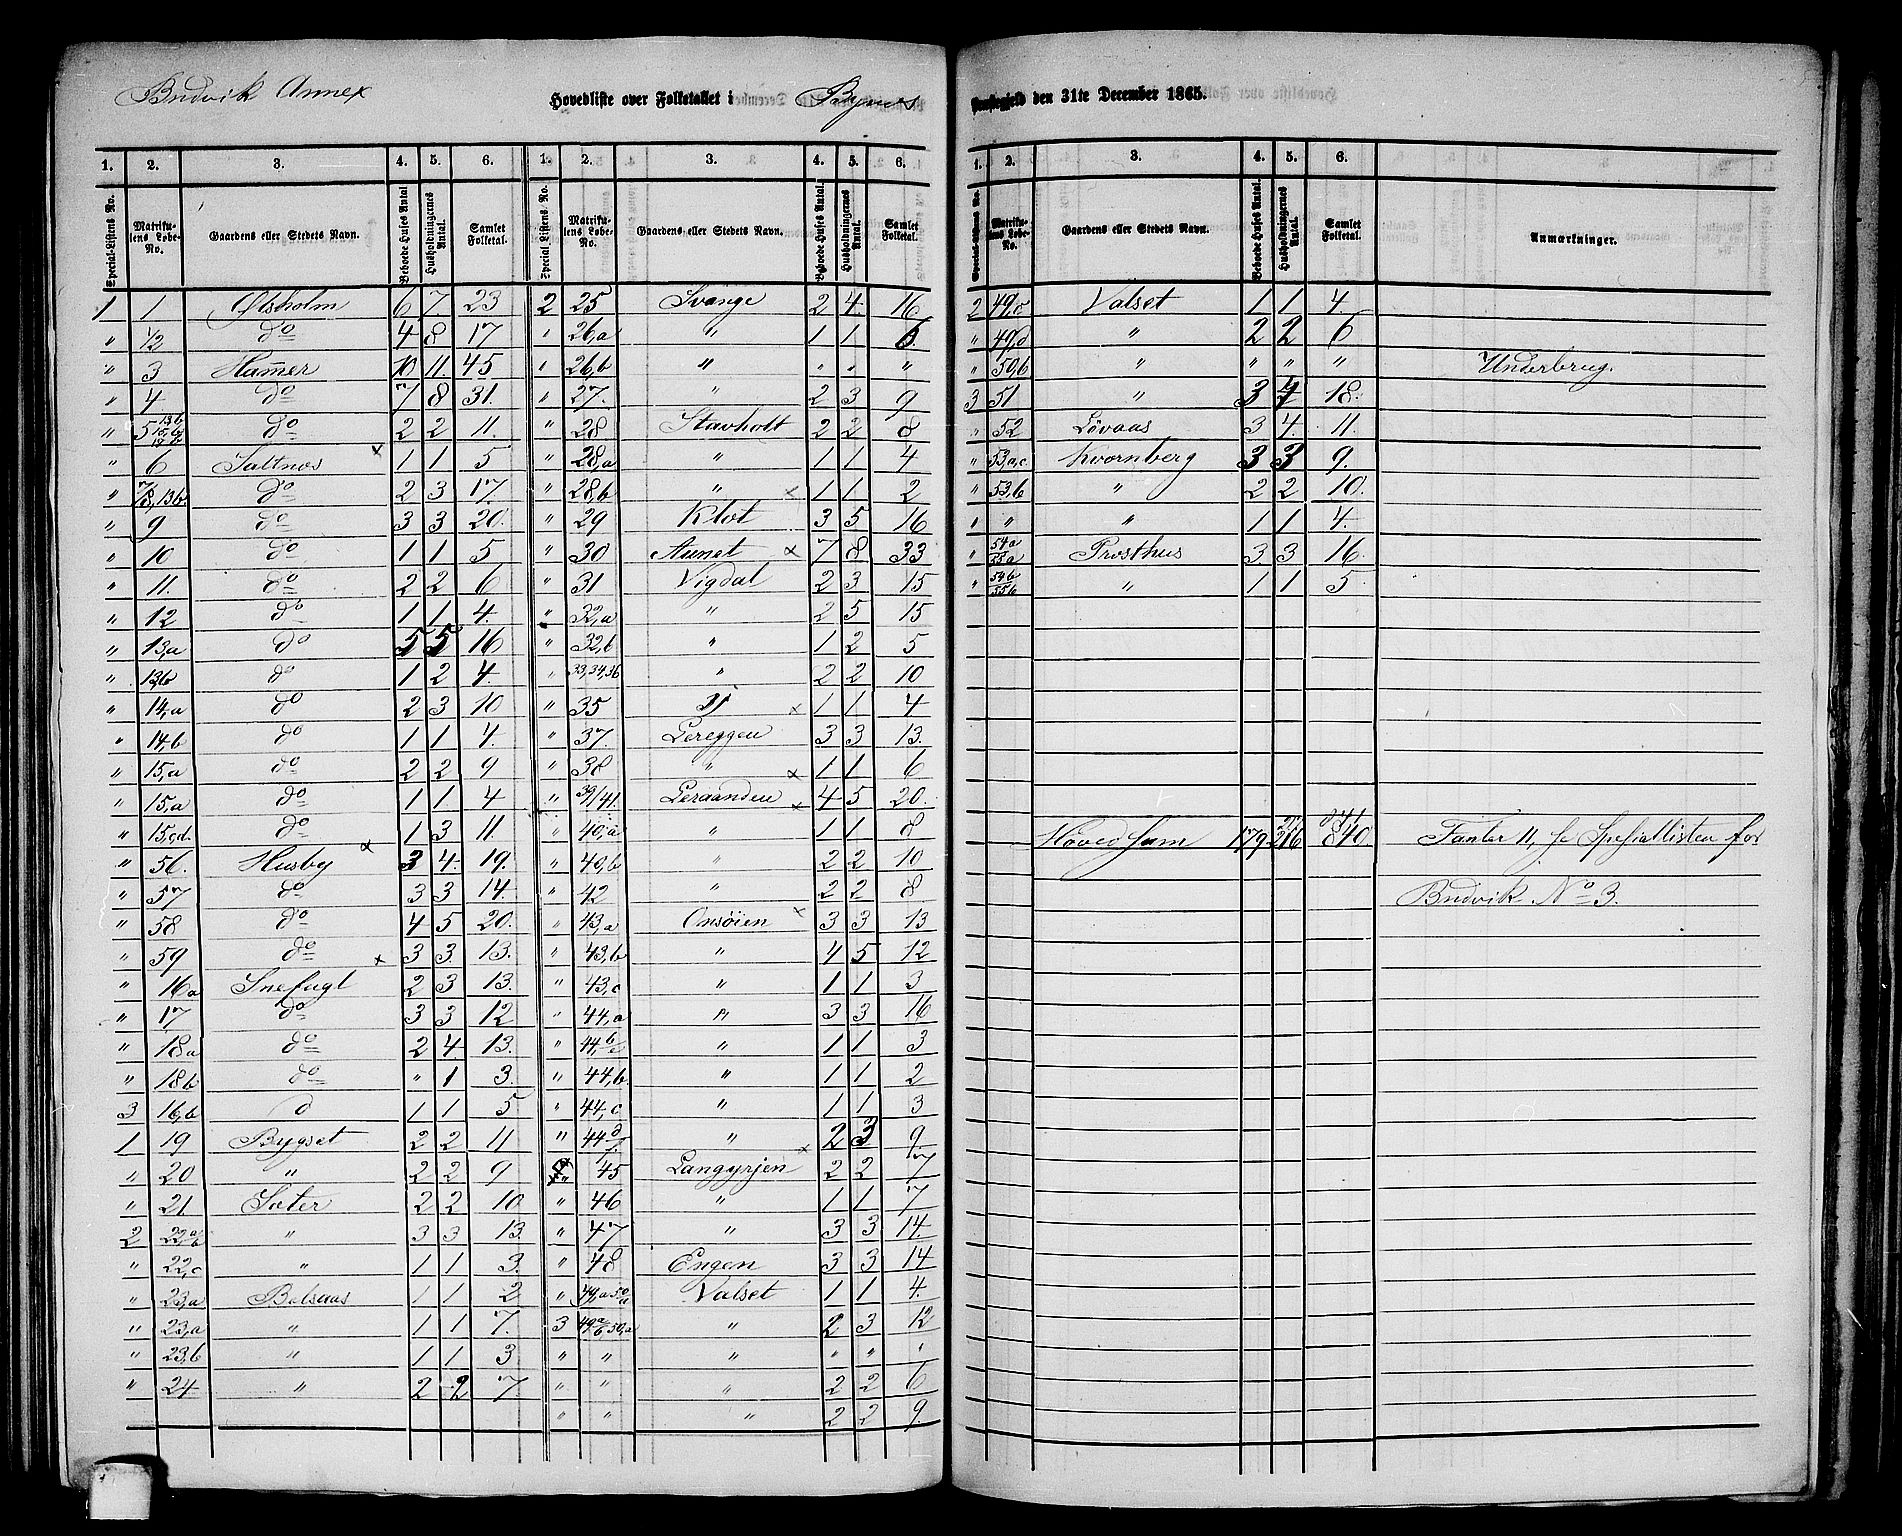 Budvik Annex Hovedliste over Folketallet i Bynes Præstegjeld den 31te December 1865.
1. 2. 3. 4. 5. 6. 1. 2. 3. 4. 5. 6.
Special-Listens No. Matrikulens Løbe-No. Gaardens eller Stedets Navn. Beboede Huses Antal Husholdningernes Antal. Samlet Folketal. Special-Listens No. Matrikulens Løbe-No. Gaardens eller Stedets Navn. Beboede Huses Antal. Husholdningernes Antal. Samlet Folketal.
1 1 Ølsholm 6 7. 23 2 25 Svange 2 4. 16
" 1/2 do 4 8 17 " 26,a " 1 1 6.
" 3 Hamer 10 11. 45 " 26,b " " " "
" 4 do 7 8 31. " 27. " 2 3 9
" 5 13b 15,b do 2 2 11. " 28 Stavholt 2 2 8
" 6 Saltnes x 1 1 5 " 28,a " 1 1 4
" 7/8,13b. do 2 3 17. " 28,b " x 1 1 2
" 9 do 3 3 20. " 29 Klot 3 5 16
" 10 do 1 1 5 " 30 Aunet x 7 8 33
" 11. do 2 2 6 " 31 Vigdal 2 3 15
" 12 do 1 1 4. " 32,a " 2 5 15
" 13,a do 5 5 16 " 32,b " 1 2 5
" 13b do 1 2 4. " 33,34,36 " 2 2 10
" 14,a do 2 3 10 " 35 " x 1 1 4
" 14,b do 1 1 4. " 37. Lereggen 3 3 13.
" 15,a do 2 2 9 " 38 " x 1 1 6
" 15,a do 1 1 4 " 39/41. Leraanden x 4 5 20.
" 15,cd. do x 1 3 11. " 40,a " 1 1 8
" 56. Husby 3 4. 19. " 40,b " 2 2 10
" 57 do 3 3 14. " 42 " 2 2 8
" 58 do 4 5 20. " 43,a Onsøien x 3 3 13
" 59 do x 3 3. 13. " 43,b " 4 5 12
" 16a Snefugl 2 3 13. " 43,c " 1 1 3
" 17 do 3 3 12 " 44,a " 3 3 16
" 18a do 2 4. 13. " 44,b/c " 1 1 3
" 18b do " 1 3. " 44,b " 1 1 2
3 16,b d 1 1 5 " 44,c " 1 1 3
1 19 Bygset 2 2 11 " 44 d/f. " x 2 3 9
" 20 " 2 2 9 " 45 Langyrjen 2 2 7
" 21. Sæter 2 2 10 " 46 " 1 1 7
2 22,a/b " 3 3 13. " 47 " 3 3 14.
" 22,c " 1 1 3. " 48 Engen 3 3 14
" 23,a Bolsaas 1 1 2 " 49,a 50/a Valset 1 1 4.
" 23,a " 1 1 7. 3 49,a/b 50,a " 2 3 12
" 23,b " 1 1 3 " " " " " "
" 24 " 2 2 7. " " " 2 2 6
" " " 2 2 9
1. 2. 3. 4. 5. 6.
Special-Listens No. Matrikulens Løbe-No. Gaardens eller Stedets Navn. Beboede Huses Antal. Husholdningernes Antal. Samlet Folketal. Anmærkninger.
2 49,c Valset 1 1 4.
" 49,d " 2 2 6
" 50,b " " " " Underbrug.
3 51 " 3 4 18.
" 52 Løvaas 3 4. 11.
" 53,a,c. Kvornberg 3 3 9.
" 53,b " 2 2 10.
" " " 1 1 4.
" 54a/55a Prosthus 3. 3 16.
" 54b/55b " 1 1 5
841
Hoved Sum 179 216 840 Fanter 11, se Speciallisten for
Budvik No 3.